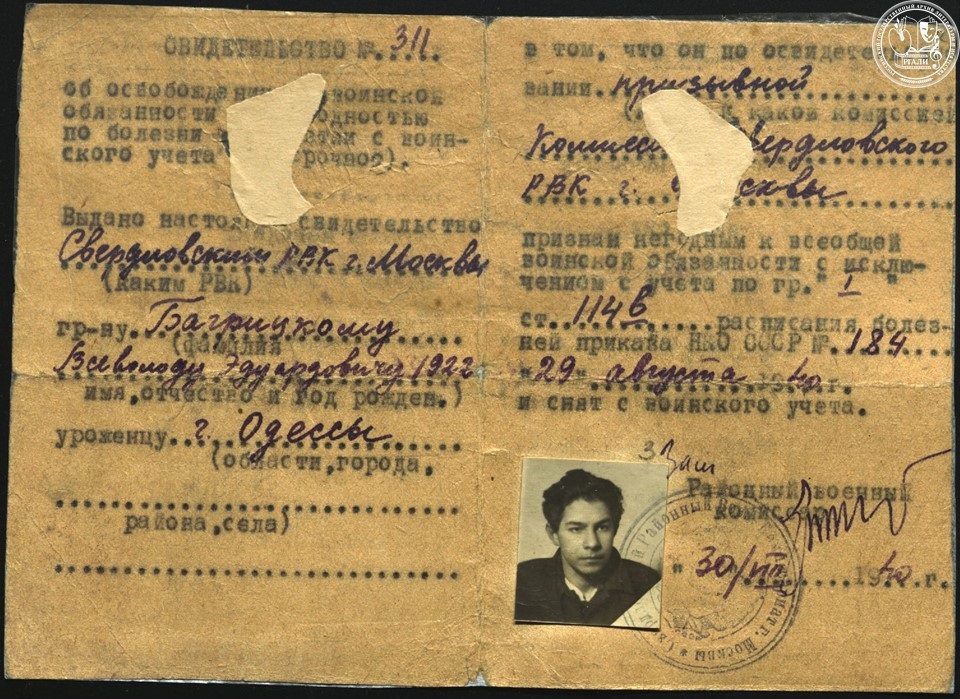 СВИДЕТЕЛЬСТВО №.311.
об освобождении воинской
обязанности
по болезни с воин-
ского учета
Выдано свидетельство
Свердловским РВК г. Москвы
(Каким РВК)
гр-ну. Багрицкому
(фамилия
Всеволоду Эдуардовичу 1922
имя, отчество и год рожден.)
уроженцу.. г. Одессы
(области, города,
района, села)
в том, что он по
вании. призывной
каков комиссией
РВК г.
признан негодным к всеобщей
воинской обязанности с исклю-
чением с учета по гр." I "
ст. 114в расписания болез-
ней приказа НКО СССР №. 184
"29" августа 1940 г.
и снят с воинского учета.
Районный военный
комиссар
"30/VIII 1940 г.
РГАЛИ